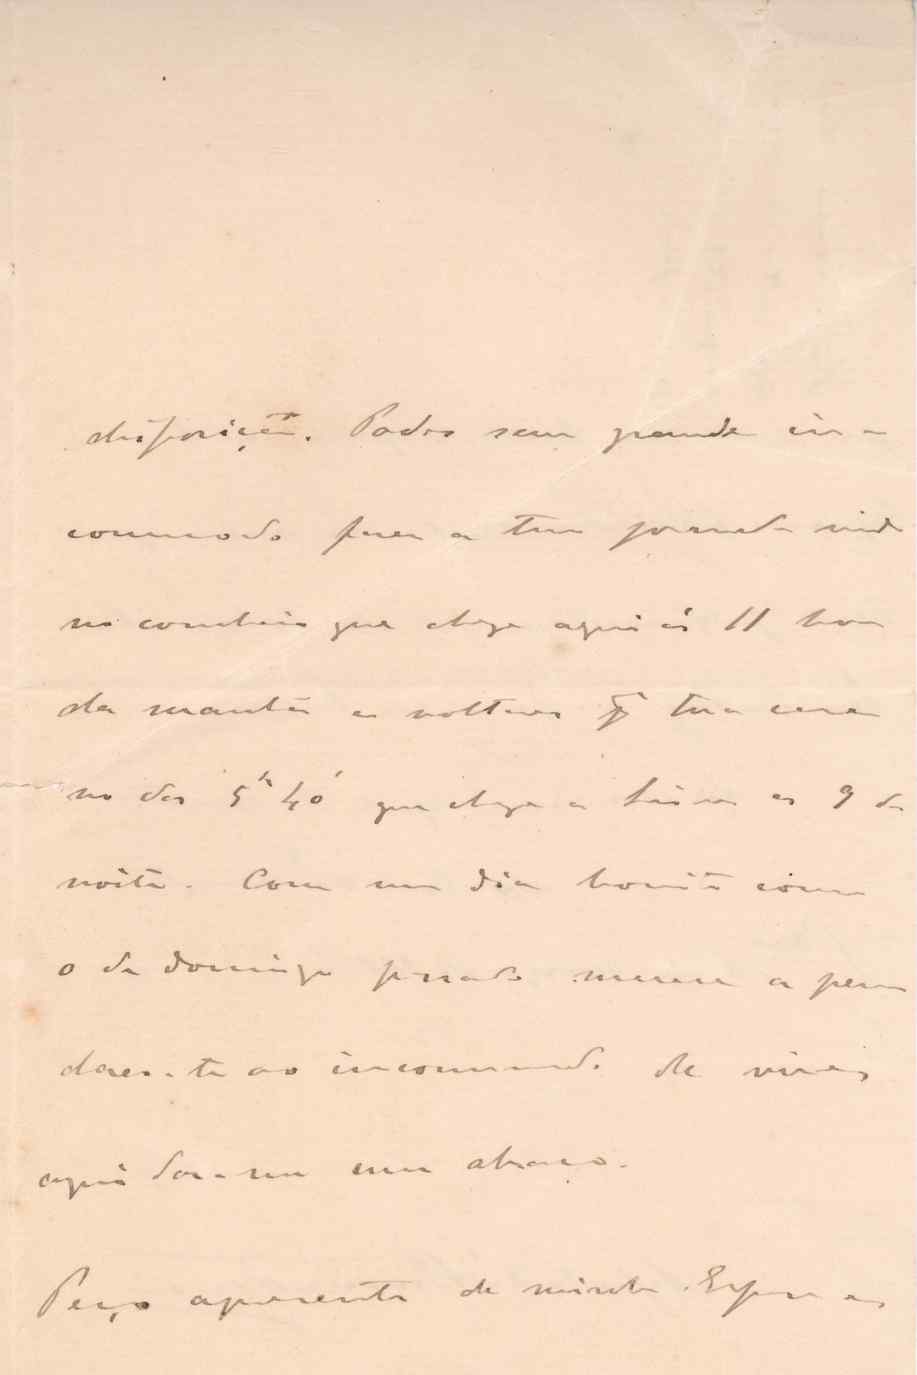 disposição. Podes sem grande in-
commodo fazer a tua jornada vindo
no comboio que chega aqui ás 11 horas
da manhã e voltares pª tua casa
no das 5h 40' que chega a Lisboa ás 9 da
noite. Com um dia bonito como
o de domingo passado merece a pena
dares-te ao incommodo de vires
aqui dar-me um abraço.
Peço apresente de minha Espoza as